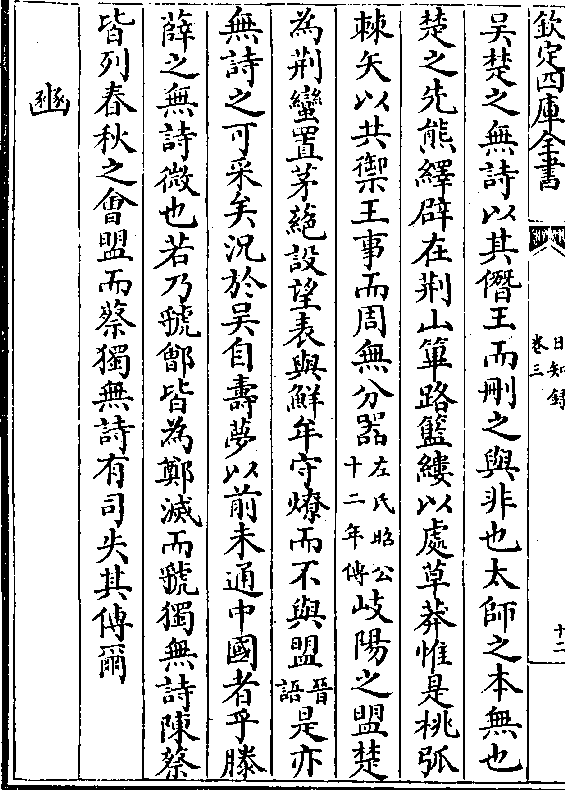 欽定四庫全書
日知錄
卷三
十二
吳楚之無詩以其僭王而刪之與非也太師之本無也
楚之先熊繹辟在荆山篳路籃縷以處草莽惟是桃弧
棘矢以共禦王事而周無分器左氏昭公十二年傳岐陽之盟楚
為荆蠻置茅蕝設望表與鮮牟守燎而不與盟晉語是亦
無詩之可采矣況於吳自壽夢以前未通中國者乎滕
薛之無詩微也若乃虢鄶皆為鄭滅而虢獨無詩陳蔡
皆列春秋之會盟而蔡獨無詩有司失其傳爾
豳